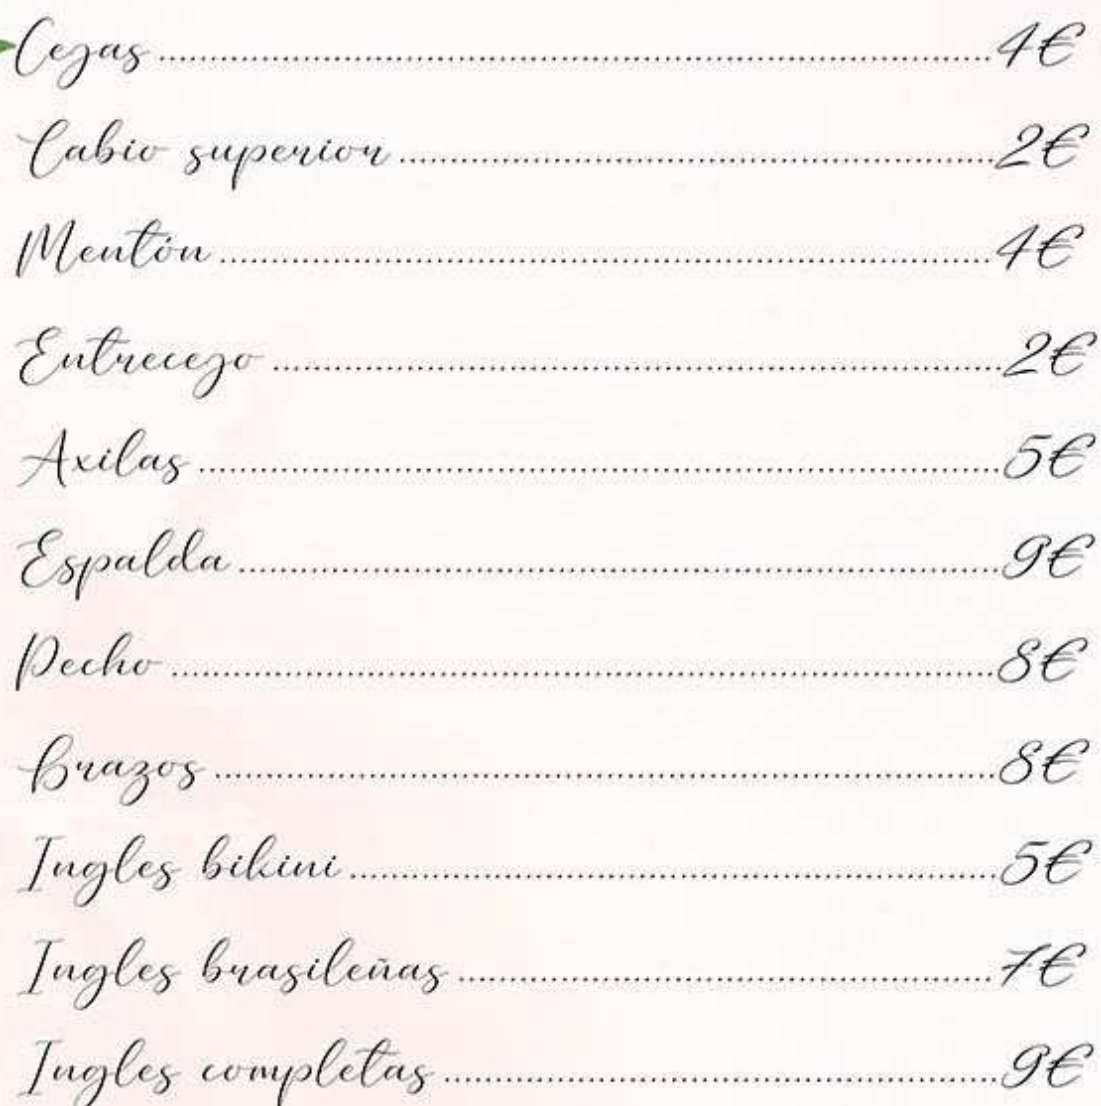 Cejas ........ 4€
Labio superior ........ 2€
Mentón ........ 4€
Entrecejo ........ 2€
Axilas ........ 5€
Espalda ........ 9€
Pecho ........ 8€
Brazos ........ 8€
Ingles bikini ........ 5€
Ingles brasileñas ........ 7€
Ingles completas ........ 9€